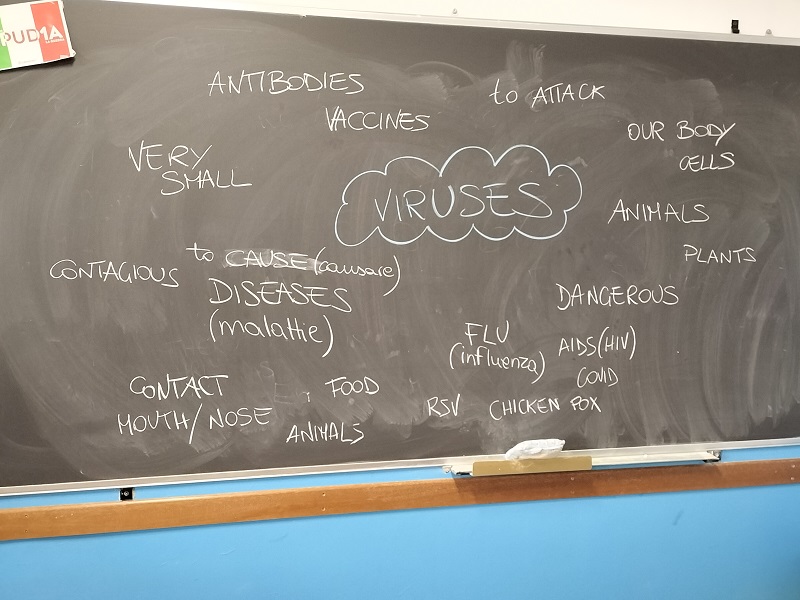 PUD1A
ANTIBODIES
to ATTACK
VACCINES
OUR BODY
CELLS
VERY
SMALL
VIRUSES
ANIMALS
PLANTS
to CAUSE (causare)
CONTAGIOUS
DISEASES
(malattie)
DANGEROUS
FLU
(influenza)
AIDS (HIV)
COVID
CONTACT
FOOD
MOUTH/NOSE
ANIMALS
RSV
CHICKEN POX